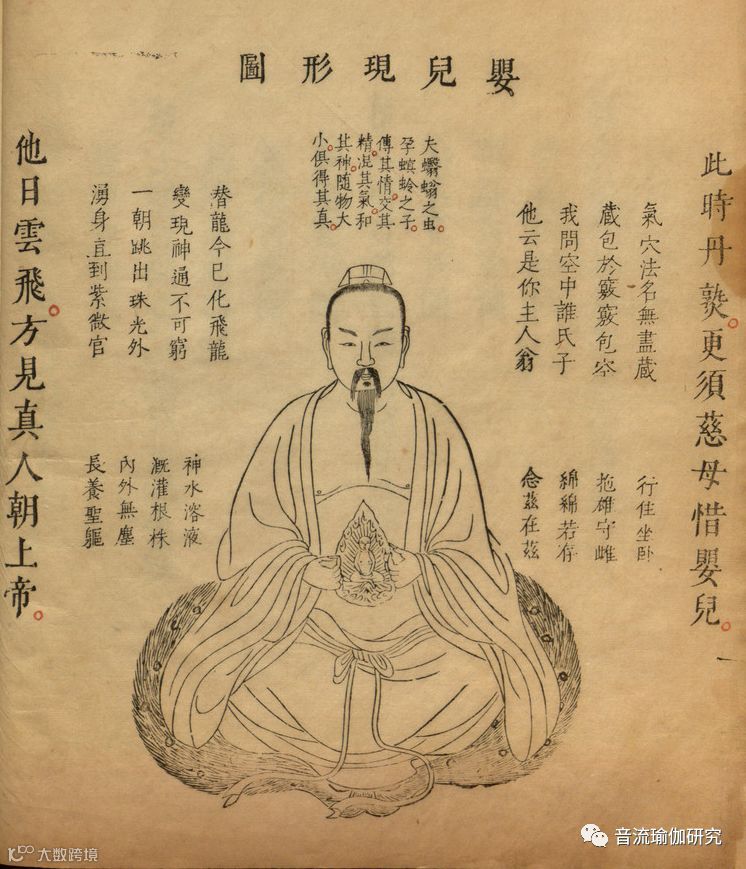 嬰兒現形圖
此時丹熟。更須慈母惜嬰兒。
一
氣穴法名無盡藏
藏包於竅竅包空
我問空中誰氏子
他云是你主人翁
行住坐卧
抱雄守雌
綿綿若存
念茲在茲
夫蠮螉之虫。
孕螟蛉之子。
傳其情。交其
精。混其氣。和
其神。隨物大
小。俱得其真。
潛龍今已化飛龍
變現神通不可窮
一朝跳出珠光外
湧身直到紫微宮
神水溶液
溉灌根株
內外無塵
長養聖軀
他日雲飛。方見真人朝上帝。
音流瑜伽研究
大数跨境